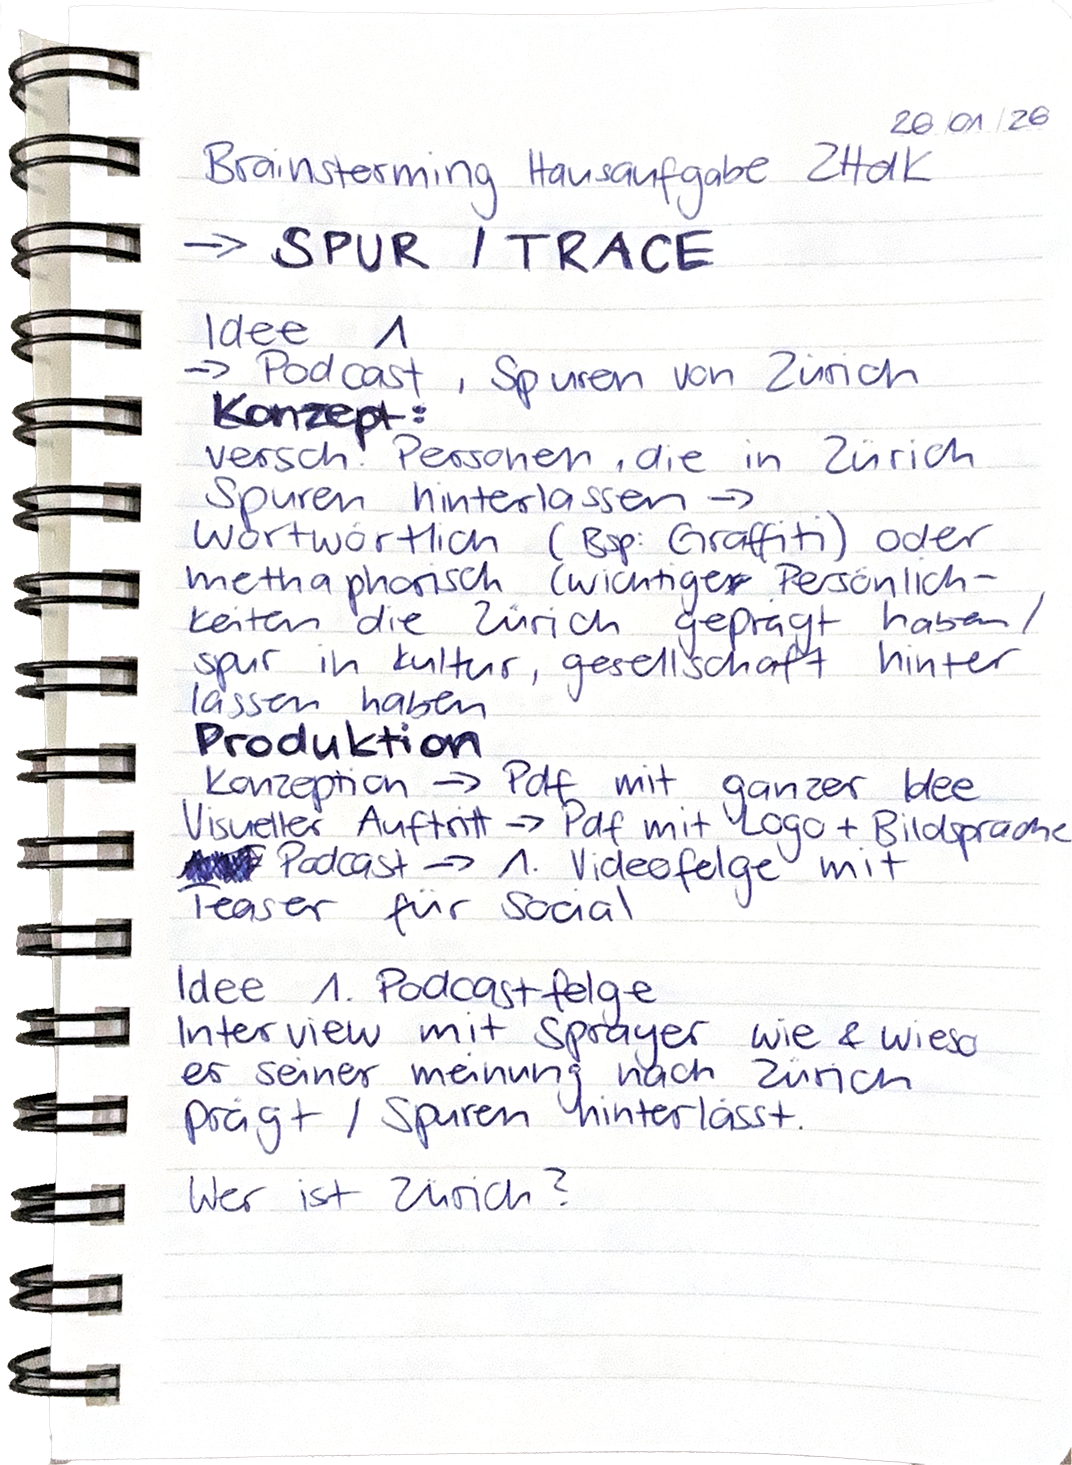 26/01/26
Brainstorming Hausaufgabe ZHdK
→ SPUR / TRACE
Idee 1
→ Podcast, Spuren von Zürich
Konzept:
versch. Personen, die in Zürich
Spuren hinterlassen →
Wortwörtlich (Bsp: Graffiti) oder
methaphorisch (wichtige Persönlich-
keiten die Zürich geprägt haben/
spur in kultur, gesellschaft hinter
lassen haben
Produktion
Konzeption → Pdf mit ganzer Idee
Visueller Auftritt → Pdf mit Logo + Bildsprache
Podcast → 1. Videofolge mit
Teaser für Social
Idee 1. Podcastfolge
Interview mit Sprayer wie & wieso
er seiner meinung nach Zürich
prägt / Spuren hinterlässt.
Wer ist Zürich?